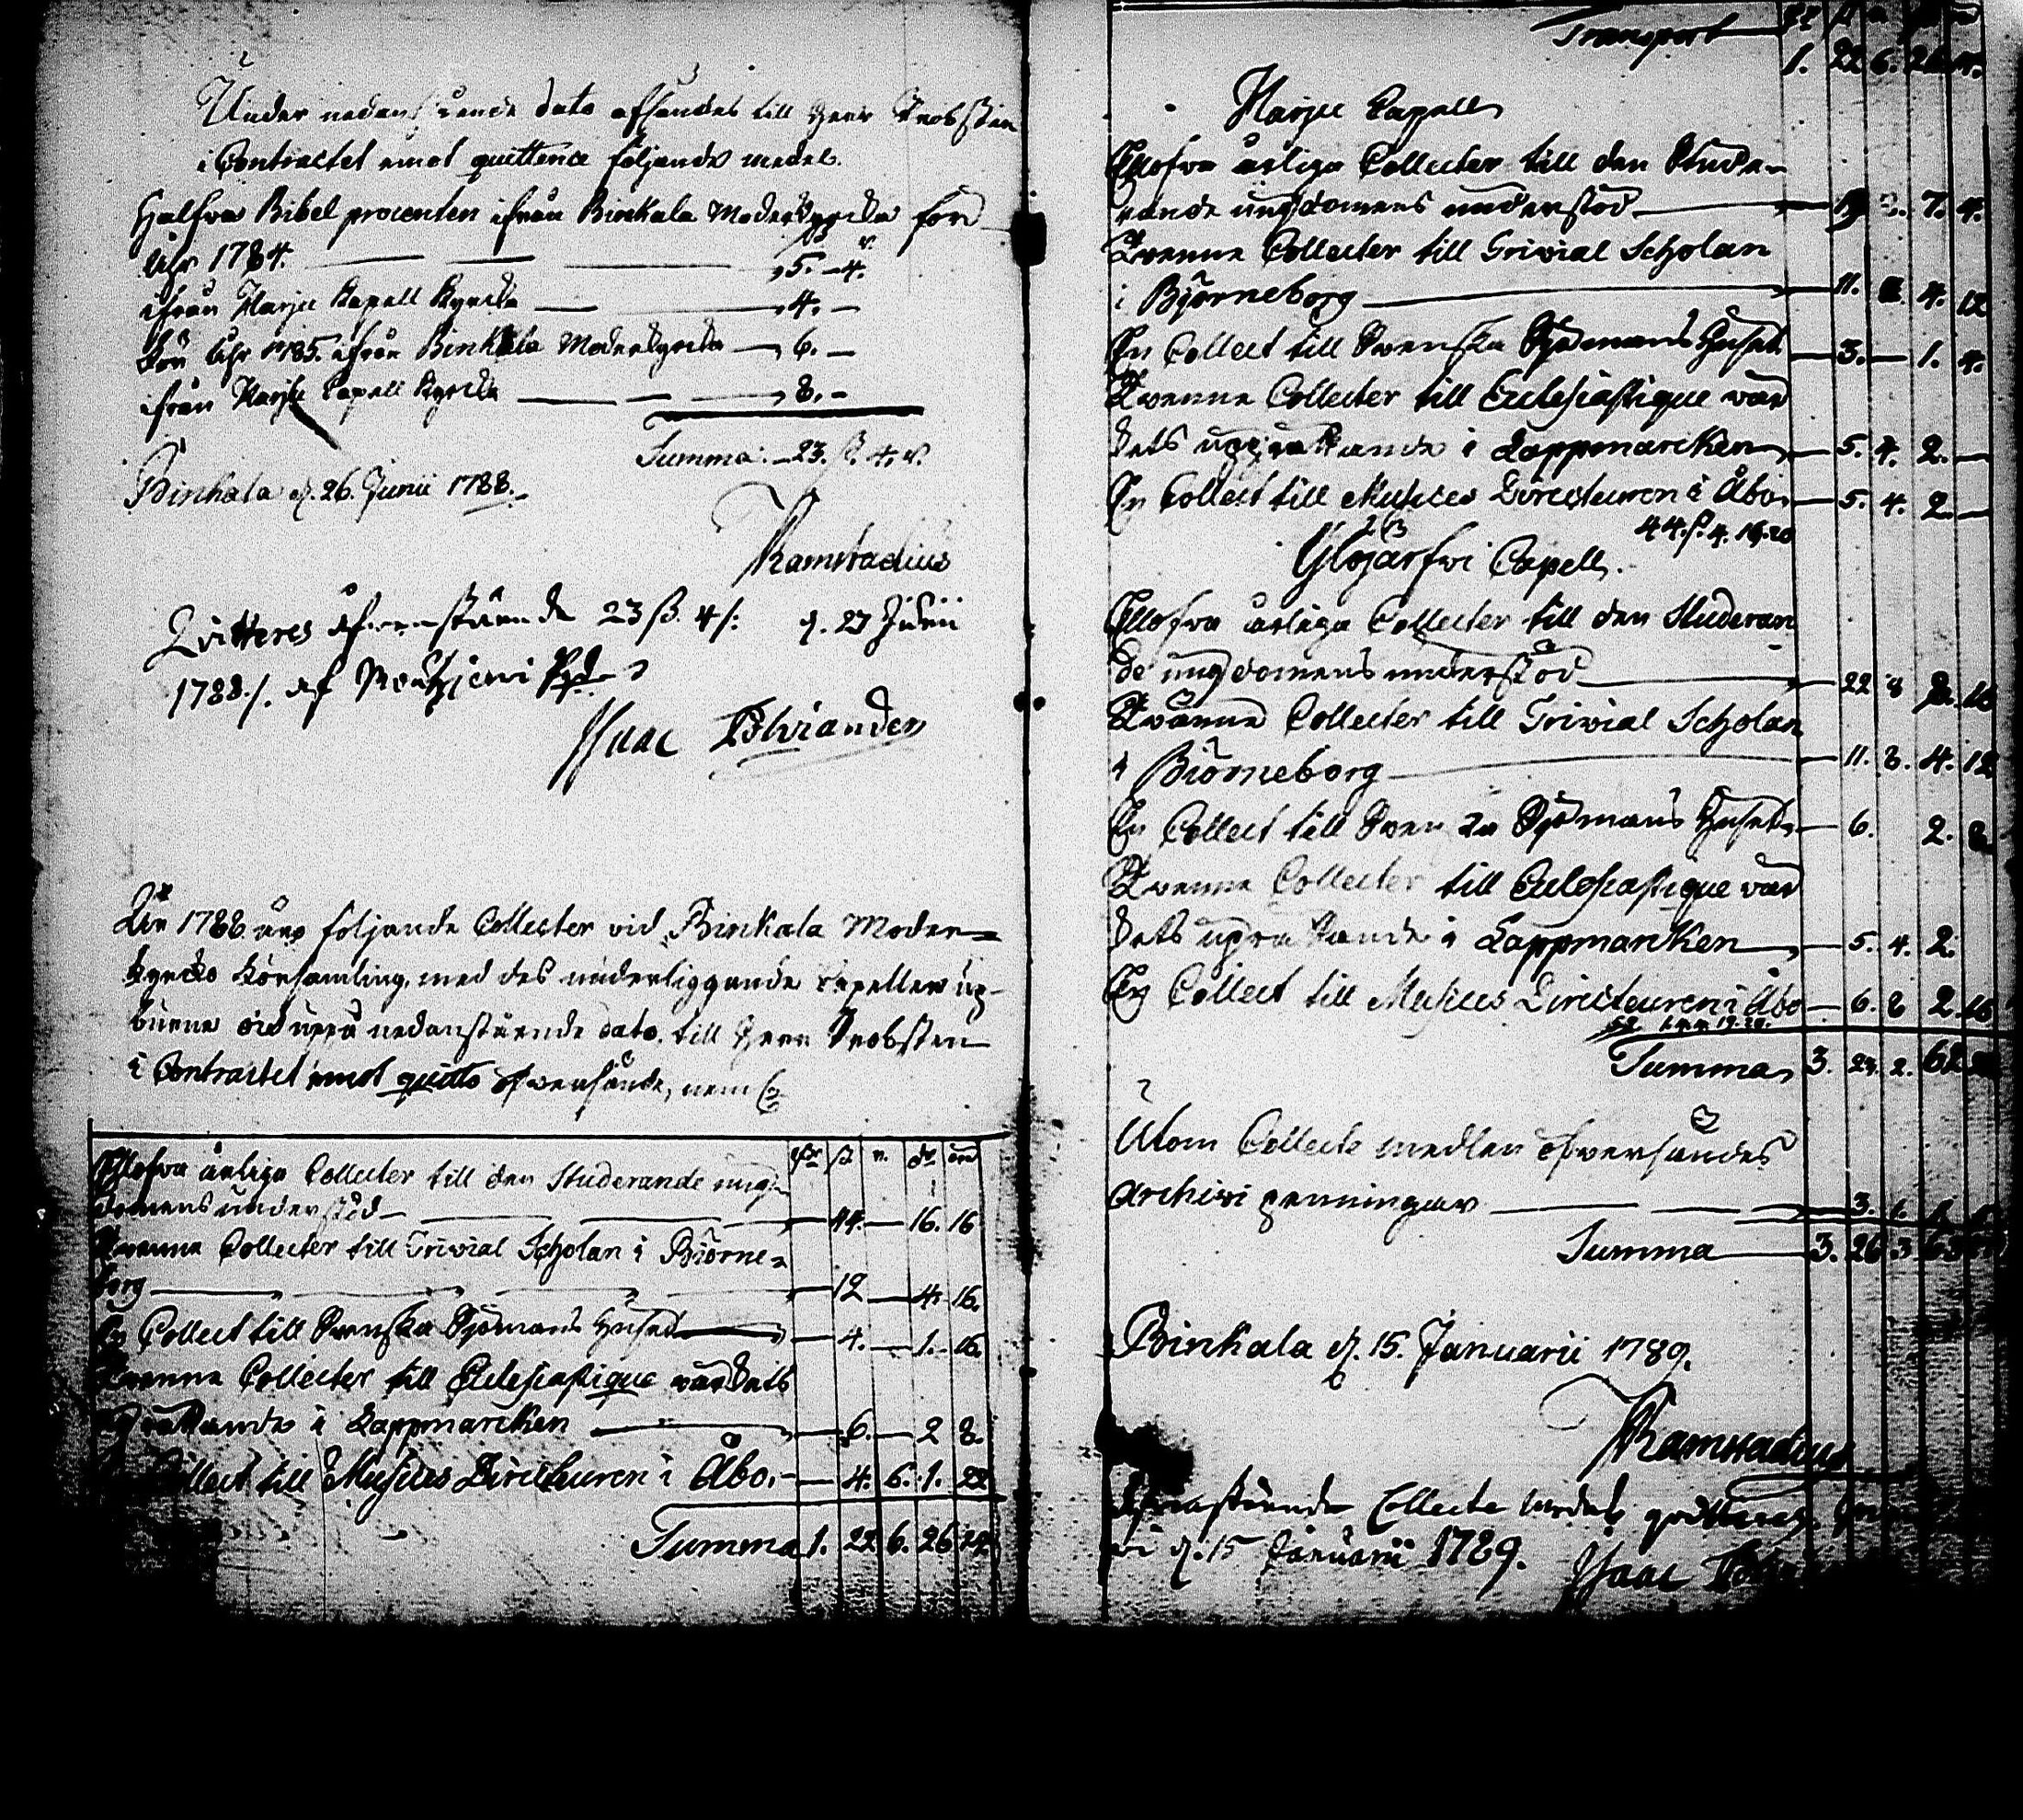 Under nedanstående dato afsändes till Herr Probsten
i Contractet emot quittence följande medel.
Halfva Bibel procenten ifrån Birkala Moderkyrcka för
Åhr 1784. 5. 4.
ifrån Harju Kapell Kyrcka 4. –
För Åhr 1785. ifrån Birkala Moderkyrcka 6. –
ifrån Harju Capell Kyrcka 8. –
Summa. 23. ß. 4. r.
Birkala d. 26. Junii 1788.
Ramstadius
Qvitteres ofvanstående 23 ß. 4 /: d. 27 Junii
1788./. af
Isaac Polviander
År 1788 äro följande Collecter vid Birkala Moder-
kyrcko Församling, med des underliggande Capeller up-
burne och uppå nedanstående dato till Herr Probsten
i Contractet emot quitto öfversände, neml.
Ellofva årliga Collecter till den Studerande ung-
domens understöd 44. – 16. 16
Tvenne Collecter till Trivial Scholan i Biörne-
borg 12 – 4. 16.
En Collect till Svenska Sjömans Huset 4. – 1. 16.
Tvenne Collecter till Eclesiastique värdets
uprättande i Lappmarcken 6. – 2 8.
Collect till Musices Directeuren i Åbo. 4. 6. 1. 22
Summa 1. 22 6. 26
Transport 1. 22 6. 26
Harju Capell
Ellofva årliga Collecter till den Stude-
rande ungdomens understöd 7. 4.
Tvenne Collecter till Trivial Scholan
i Björneborg 11. 4. 12
En Collect till Svenska Sjömans Huset 3. – 1. 4.
Tvenne Collecter till Eclesiastique vär
dets uprättande i Lappmarcken 5. 4. 2. –
En Collect till Musices Directeuren i Åbo 5. 4. 2. –
Ylöjärfwi Capell.
Ellofva årliga Collecter till den Studeran
de ungdomens understöd 22 8
Tvänne Collecter till Trivial Scholan
i Biörneborg 11. 8. 4. 12
En Collect till Svenska Sjömans Huset 6. 2. 8
Tvenne Collecter till Eclesiastique vär
dets uprättande i Lappmarcken 5. 4. 2.
En Collect till Musices Directeuren i Åbo 6. 8 2. 16
Summa 3. 2. 62
Utom Collecte medlen öfversändes
Archivi penningar 3. 1. 1.
Summa 3. 26 3 63
Birkala d. 15. Januarii 1789.
Ramstadius
Ofvanstående Collecte medel qvitteras
d. 15 Januarii 1789. Isaac